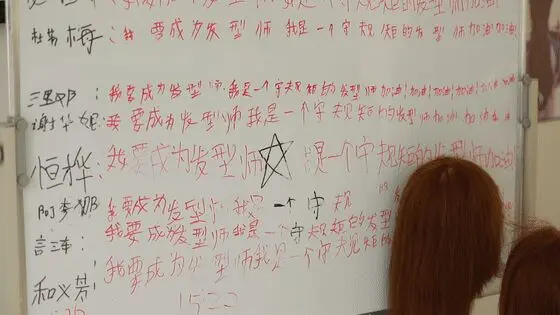 守规矩的发型师加油
杜芳梅：我要成为发型师我是一个守规矩的发型师加油加油
三里妹：我要成为发型师我是一个守规矩的发型师加油！加油！加油！加油加油
谢华妮：我要成为发型师我是一个守规矩的发型师加油加油加油
恒桦：我要成为发型师☆是一个守规矩的发型师加油
阿李：我要成为发型师我是一个守规
言三车：我要成为发型师我是一个守规矩的发型
和义芳：我要成为发型师我是一个守规矩的
15:22